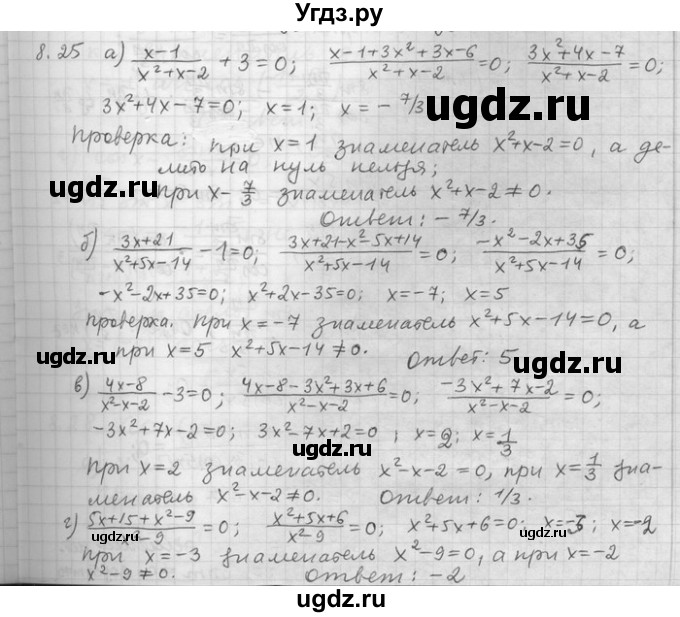 Угдз.ру
8.25 а) (x-1)/(x²+x-2) + 3 = 0; (x-1+3x²+3x-6)/(x²+x-2) = 0; (3x²+4x-7)/(x²+x-2) = 0;
3x²+4x-7=0; x=1; x=-7/3
ugdz.ru
Проверка: при x=1 знаменатель x²+x-2=0, а де-
лить на нуль нельзя;
ugdz.ru
при x-7/3 знаменатель x²+x-2≠0.
ugdz.ru
Ответ: -7/3.
б) (3x+21)/(x²+5x-14) - 1=0; (3x+21-x²-5x+14)/(x²+5x-14) = 0; (-x²-2x+35)/(x²+5x-14) = 0;
-x²-2x+35=0; x²+2x-35=0; x=-7; x=5
Проверка. При x=-7 знаменатель x²+5x-14=0, а
ugdz.ru
при x=5 x²+5x-14≠0. Ответ: 5
ugdz.ru
в) (4x-8)/(x²-x-2) - 3=0; (4x-8-3x²+3x+6)/(x²-x-2) = 0; (-3x²+7x-2)/(x²-x-2) = 0;
-3x²+7x-2=0; 3x²-7x+2=0; x=2; x=1/3
ugdz.ru
При x=2 знаменатель x²-x-2=0, при x=1/3 зна-
менатель x²-x-2≠0. Ответ: 1/3.
ugdz.ru
г) (5x+15+x²-9)/(x²-9) = 0; (x²+5x+6)/(x²-9) = 0; x²+5x+6=0; x=-3; x=-2
ugdz.ru
при x=-3 знаменатель x²-9=0, а при x=-2
x²-9≠0. Ответ: -2
ugdz.ru